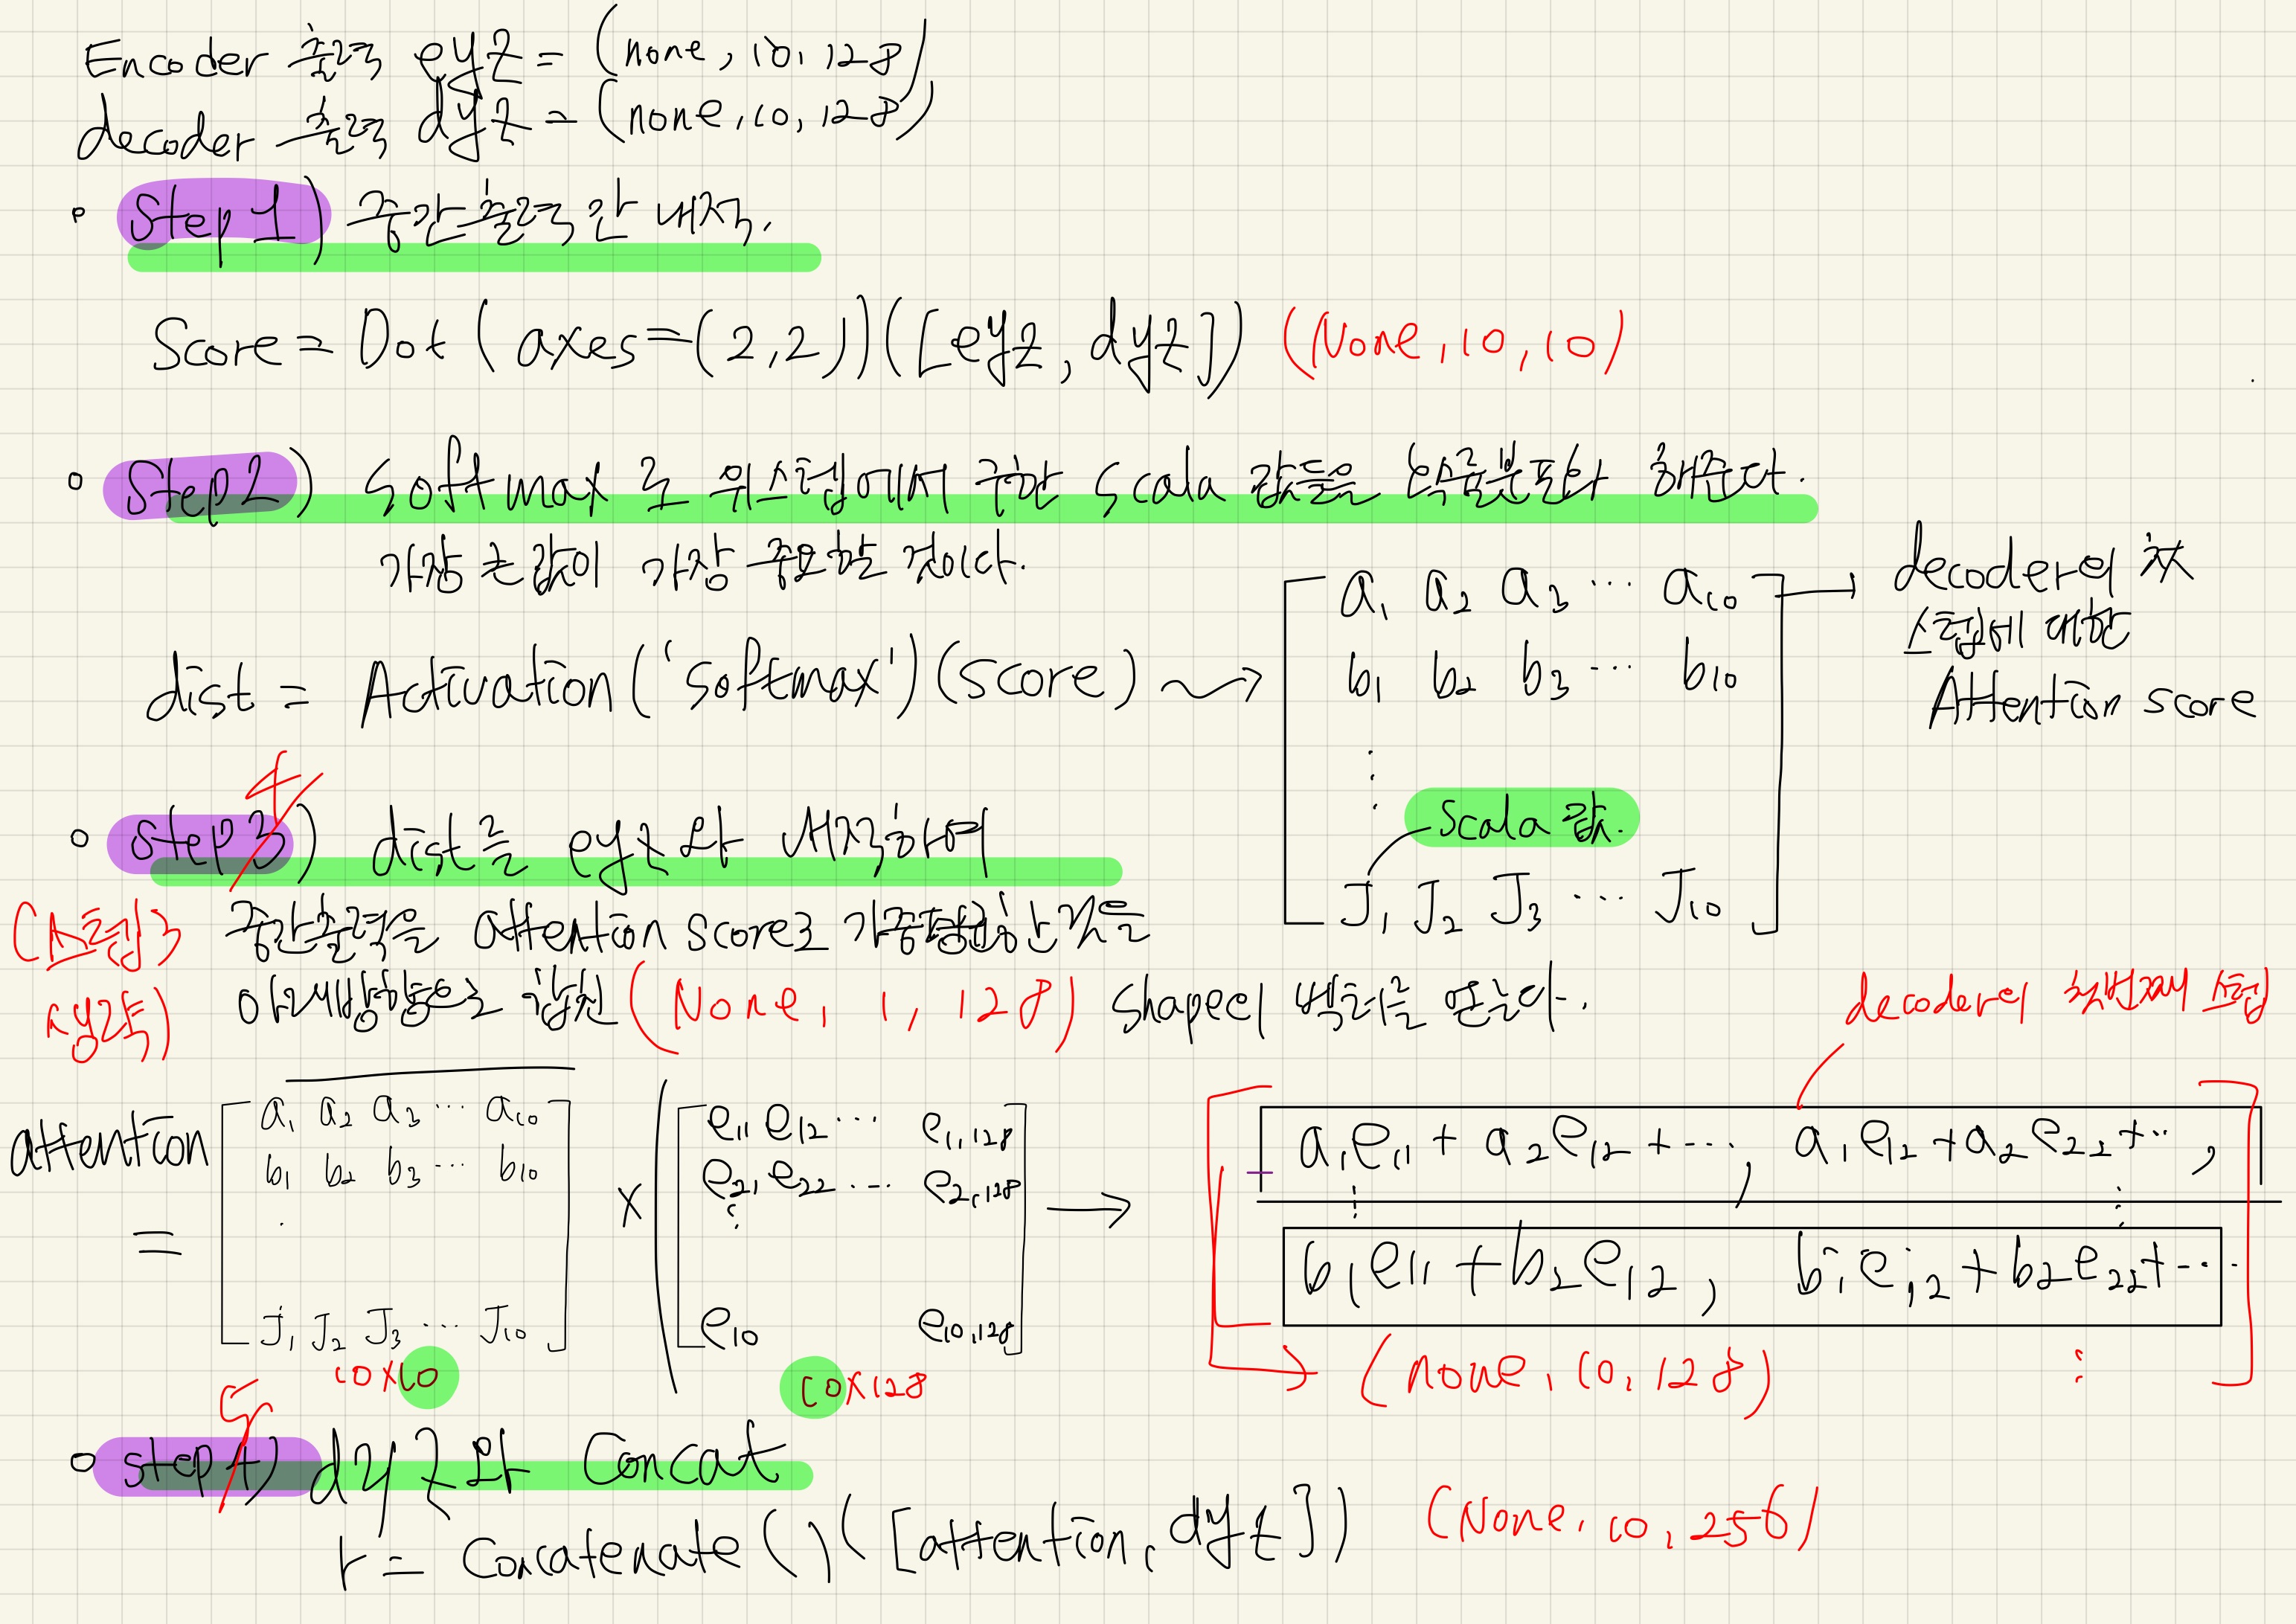 Encoder 출력 eyz = (none, 10, 128)
decoder 출력 dyz = (none, 10, 128)
• Step 1) 중간출력간 내적.
Score = Dot (axes=(2,2))([eyz, dyz]) (None, 10, 10)
• Step2) Softmax로 위스텝에서 구한 Scala 값들을 확률분포화 해준다.
가장 큰값이 가장 중요할 것이다.
dist = Activation('softmax')(score)
a₁ a₂ a₃ ⋯ a₁₀
b₁ b₂ b₃ ⋯ b₁₀
⋮
Scala 값.
J₁ J₂ J₃ ⋯ J₁₀
decoder의 첫
스텝에 대한
Attention score
• step3) 4 dist를 eyz와 내적하여
(스텝3
생략)
중간출력을 attention score로 가중합한것을
아래방향으로 합친 (None, 1, 128) shape의 벡터를 얻는다.
decoder의 첫번째 스텝
attention
=
a₁ a₂ a₃ ⋯ a₁₀
b₁ b₂ b₃ ⋯ b₁₀
J₁ J₂ J₃ ⋯ J₁₀
10×10
×
e₁₁ e₁₂ ⋯ e₁,₁₂₈
e₂₁ e₂₂ ⋯ e₂,₁₂₈
⋮
e₁₀ e₁₀,₁₂₈
10×128
→
a₁e₁₁ + a₂e₁₂ + ⋯, a₁e₁₂ + a₂e₂₂ + ⋯,
⋮ ⋮
b₁e₁₁ + b₂e₁₂, b₁e₁₂ + b₂e₂₂ + ⋯
(none, 10, 128) ⋮
• step4) 5 dyz와 Concat
r = Concatenate()([attention, dyz]) (None, 10, 256)